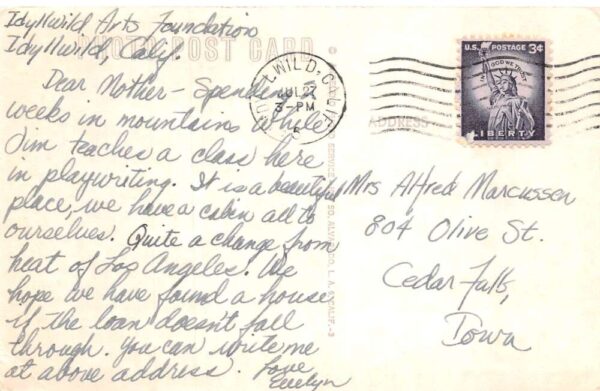 Idyllwild Arts Foundation
Idyllwild, Calif.
PHOTO POST CARD
Dear Mother- Spending
weeks in mountains while
Jim teaches a class here
in playwriting. It is a beautiful
place, we have a cabin all to
ourselves. Quite a change from
heat of Los Angeles. We
hope we have found a house
if the loan doesn't fall
through. You can write me
at above address. Love
Evelyn
IDYLLWILD, CALIF.
JUL 27
3-PM
U.S. POSTAGE 3¢
IN GOD WE TRUST
LIBERTY
ADDRESS
Mrs Alfred Marcussen
804 Olive St.
Cedar Falls,
Iowa